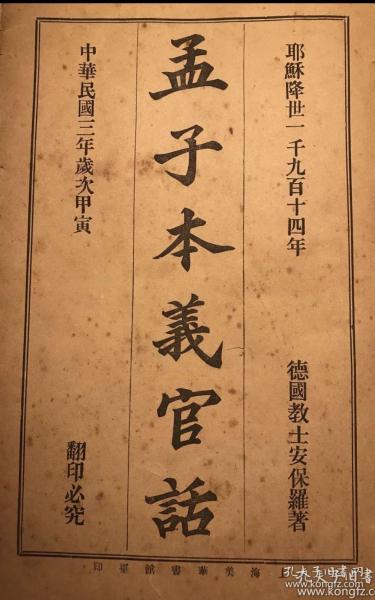 耶穌降世一千九百十四年
德國教士安保羅著
孟子本義官話
中華民國三年歲次甲寅
翻印必究
上海美華書館擺印
孔夫子旧书网
www.kongfz.com